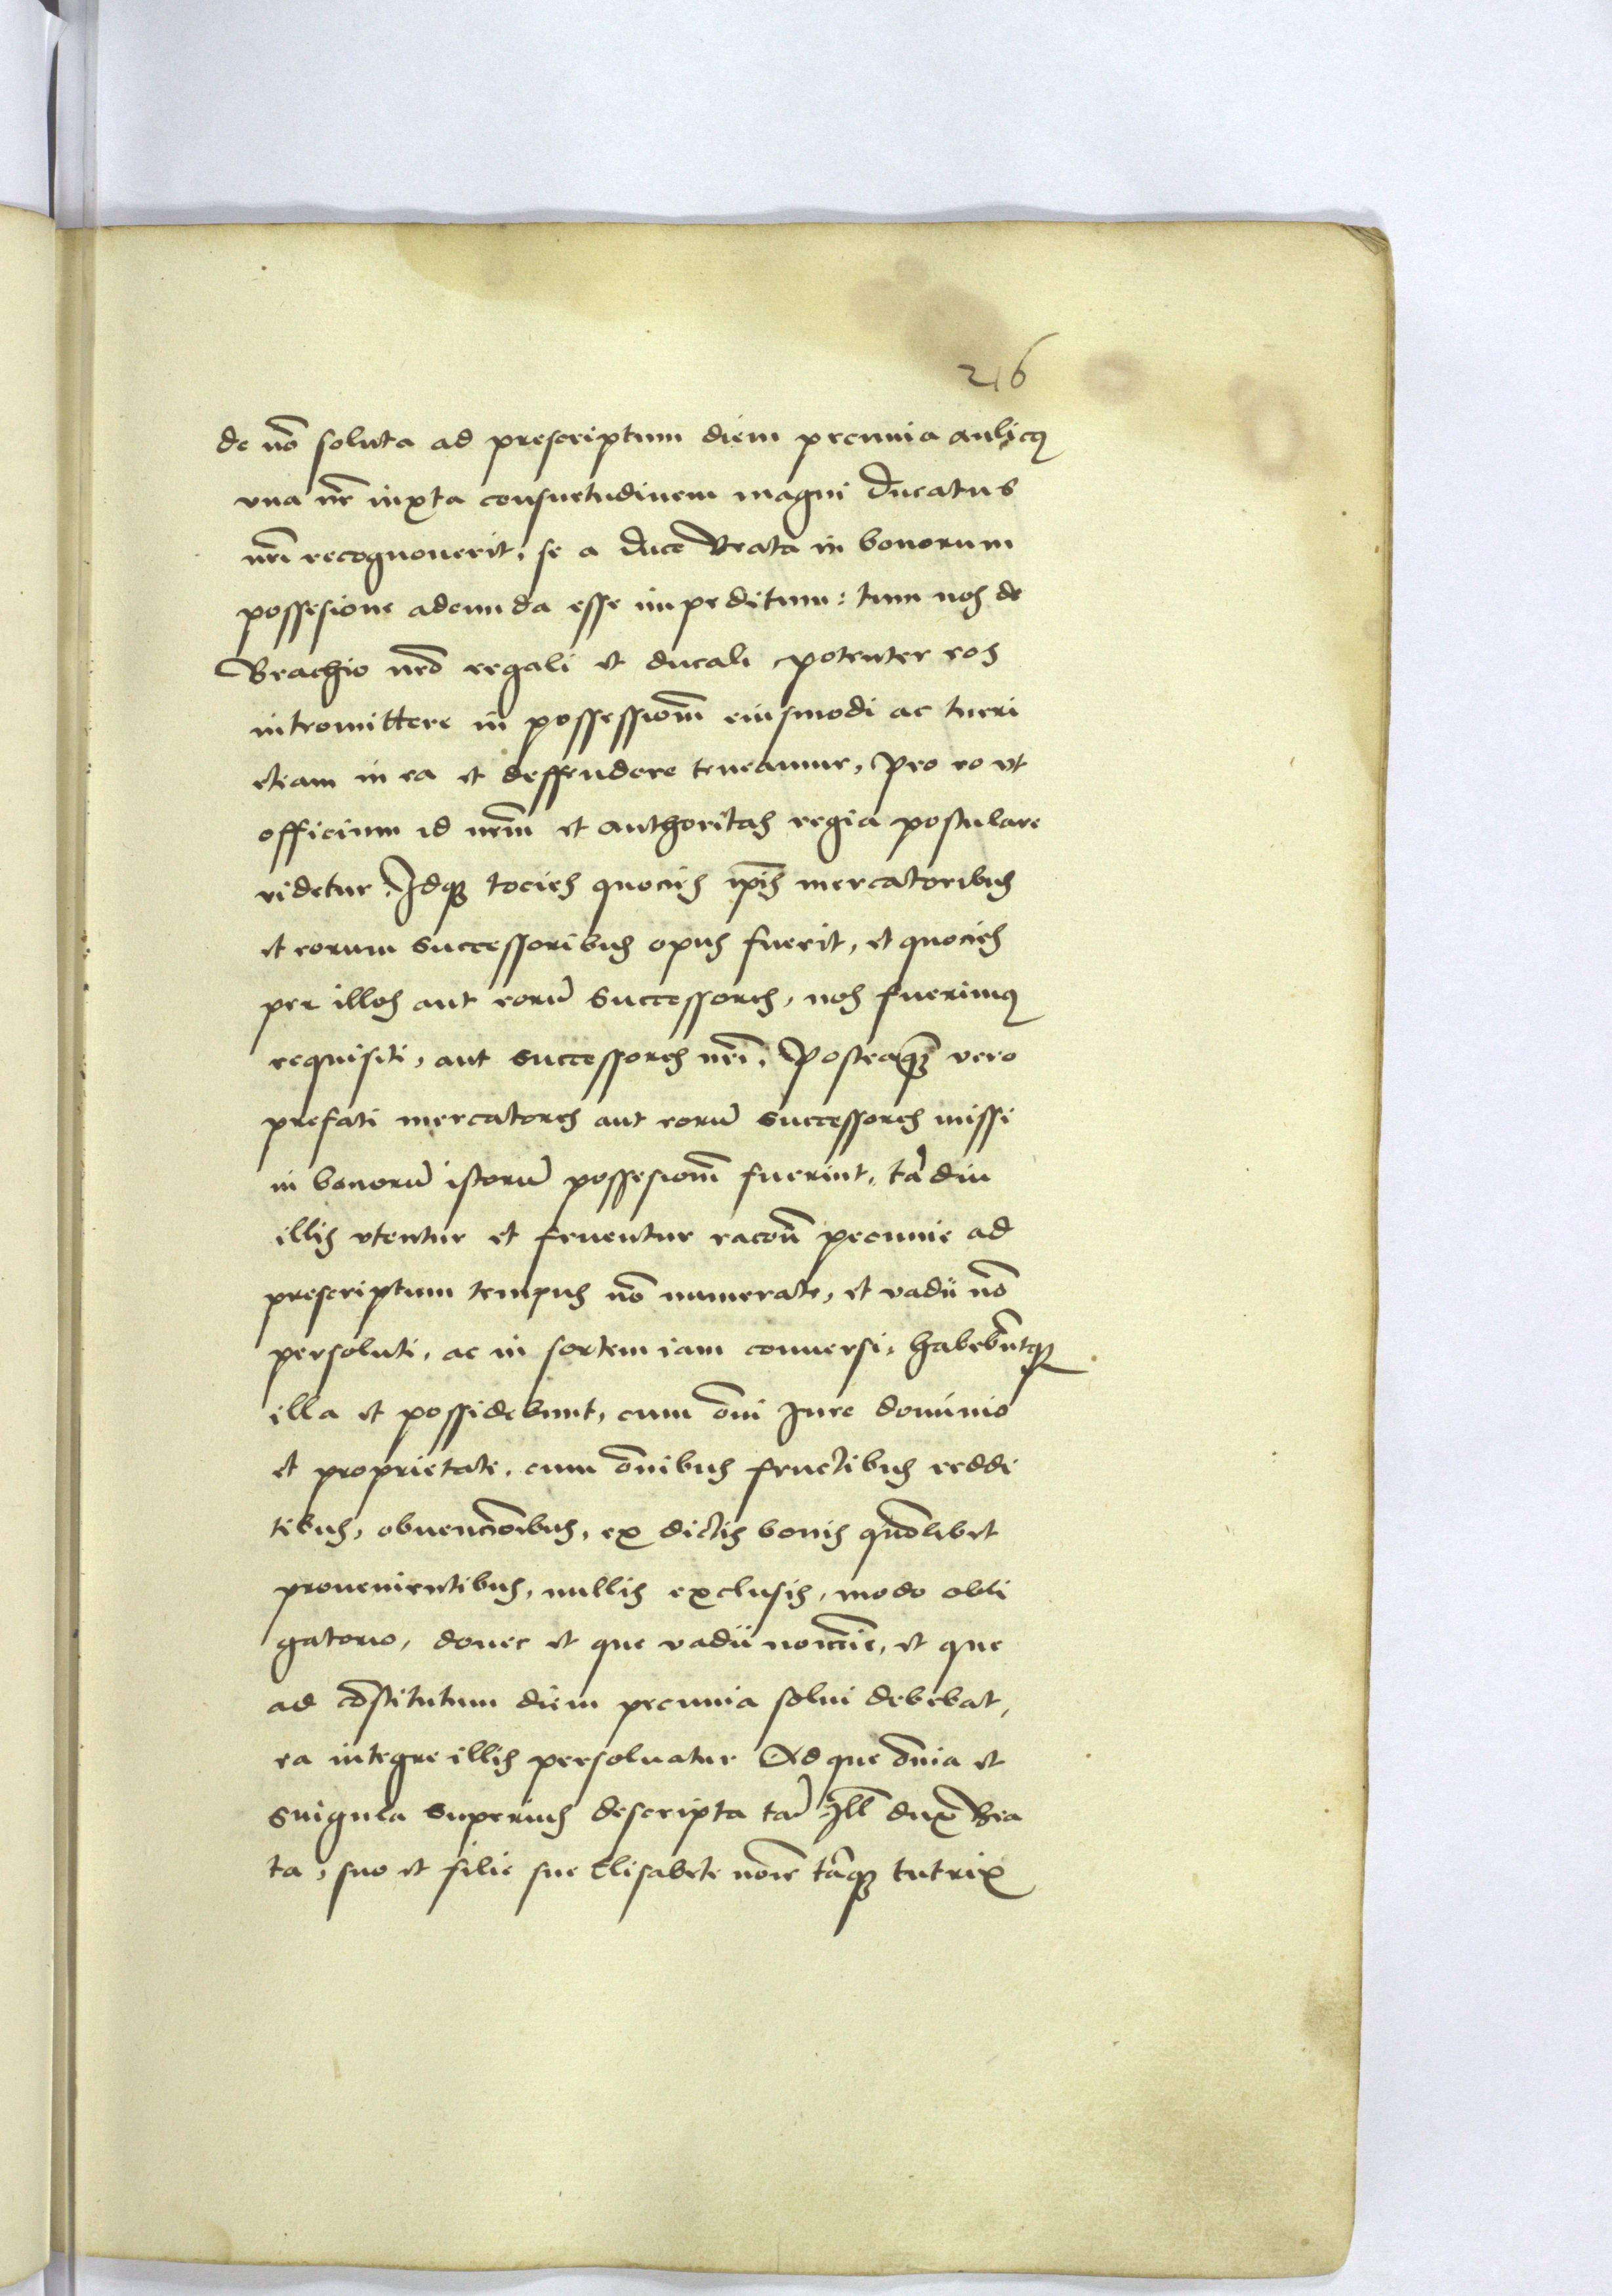 216
de nō soluta ad prescriptum diem pecunia aulicꝯ
vna nr̄ iuxta consuetudinem magni Ducatus
nr̄i recognouerit, se a duce Beata in bonorum
possesione adeunda esse impeditum: tum nos de
Brachio nr̄o regali et ducali potenter eos
intromittere in possessionē eiusmodi ac tueri
etiam in ea et deffendere teneamur, Pro eo vt
officium id nr̄m et authoritas regia postulare
videtur. Idqꝫ tocies quocies ip̄is mercatoribus
et eorum successoribus opus fuerit, et quocies
per illos aut eorū successores, nos fuerimꝯ
requisiti, aut successores nr̄i. Posteaqꝫ vero
prefati mercatores aut eorū successores missi
in bonorū istorū possesionē fuerint, tā diu
illis vtentur et fruentur racōne pecunie ad
prescriptum tempus nō numerate, et vadii nō
persoluti, ac in sortem iam conuersi, habebūtqꝫ
illa et possidebunt, cum ōni Iure dominio
et proprietate, cum ōnibus fructibus reddi
tibus, obuencōnibus, ex dictis bonis quōlibet
prouenientibus, nullis exclusis, modo obli
gatorio, donec et que vadii noīe, et que
ad cōstitutum diem pecunia solui debebat,
ea integre illis persoluatur Ad que ōnia et
singula superius descripta tā Ill dux Bea
ta, suo et filie sue Elisabete noīe tāqꝫ tutrix